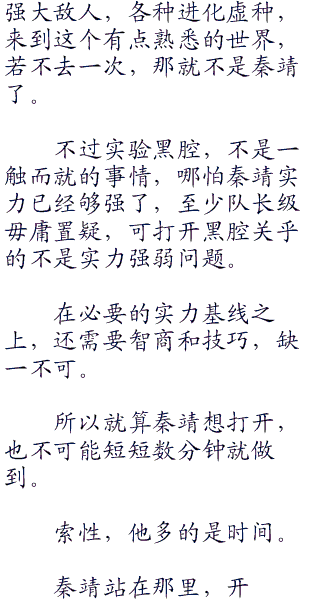 强大敌人，各种进化虚种，
来到这个有点熟悉的世界，
若不去一次，那就不是秦靖
了。
不过实验黑腔，不是一
触而就的事情，哪怕秦靖实
力已经够强了，至少队长级
毋庸置疑，可打开黑腔关乎
的不是实力强弱问题。
在必要的实力基线之
上，还需要智商和技巧，缺
一不可。
所以就算秦靖想打开，
也不可能短短数分钟就做
到。
索性，他多的是时间。
秦靖站在那里，开